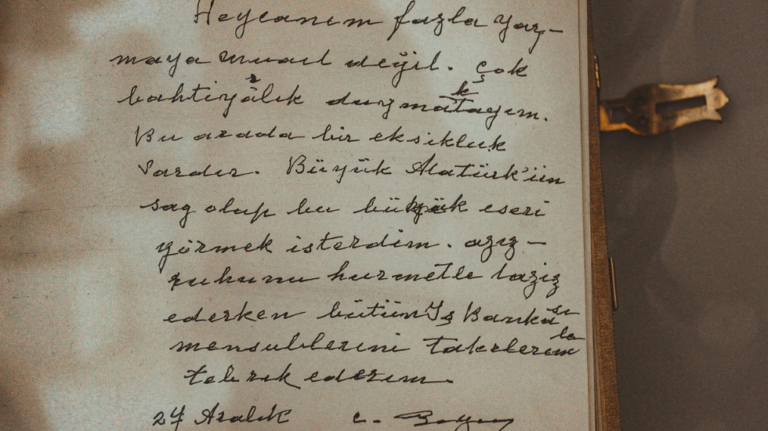 Heycanım fazla yaz-
maya müsait değil. çok
bahtiyarlık duymaktayım.
Bu arada bir eksikluk
vardır. Büyük Atatürk'ün
sag olup bu büyük eseri
görmek isterdim. aziz-
ruhunu hurmetle taziz
ederken bütün İş Bankası
mensublerini takdirlerimle
tebrik ederim.
27 Aralık C.